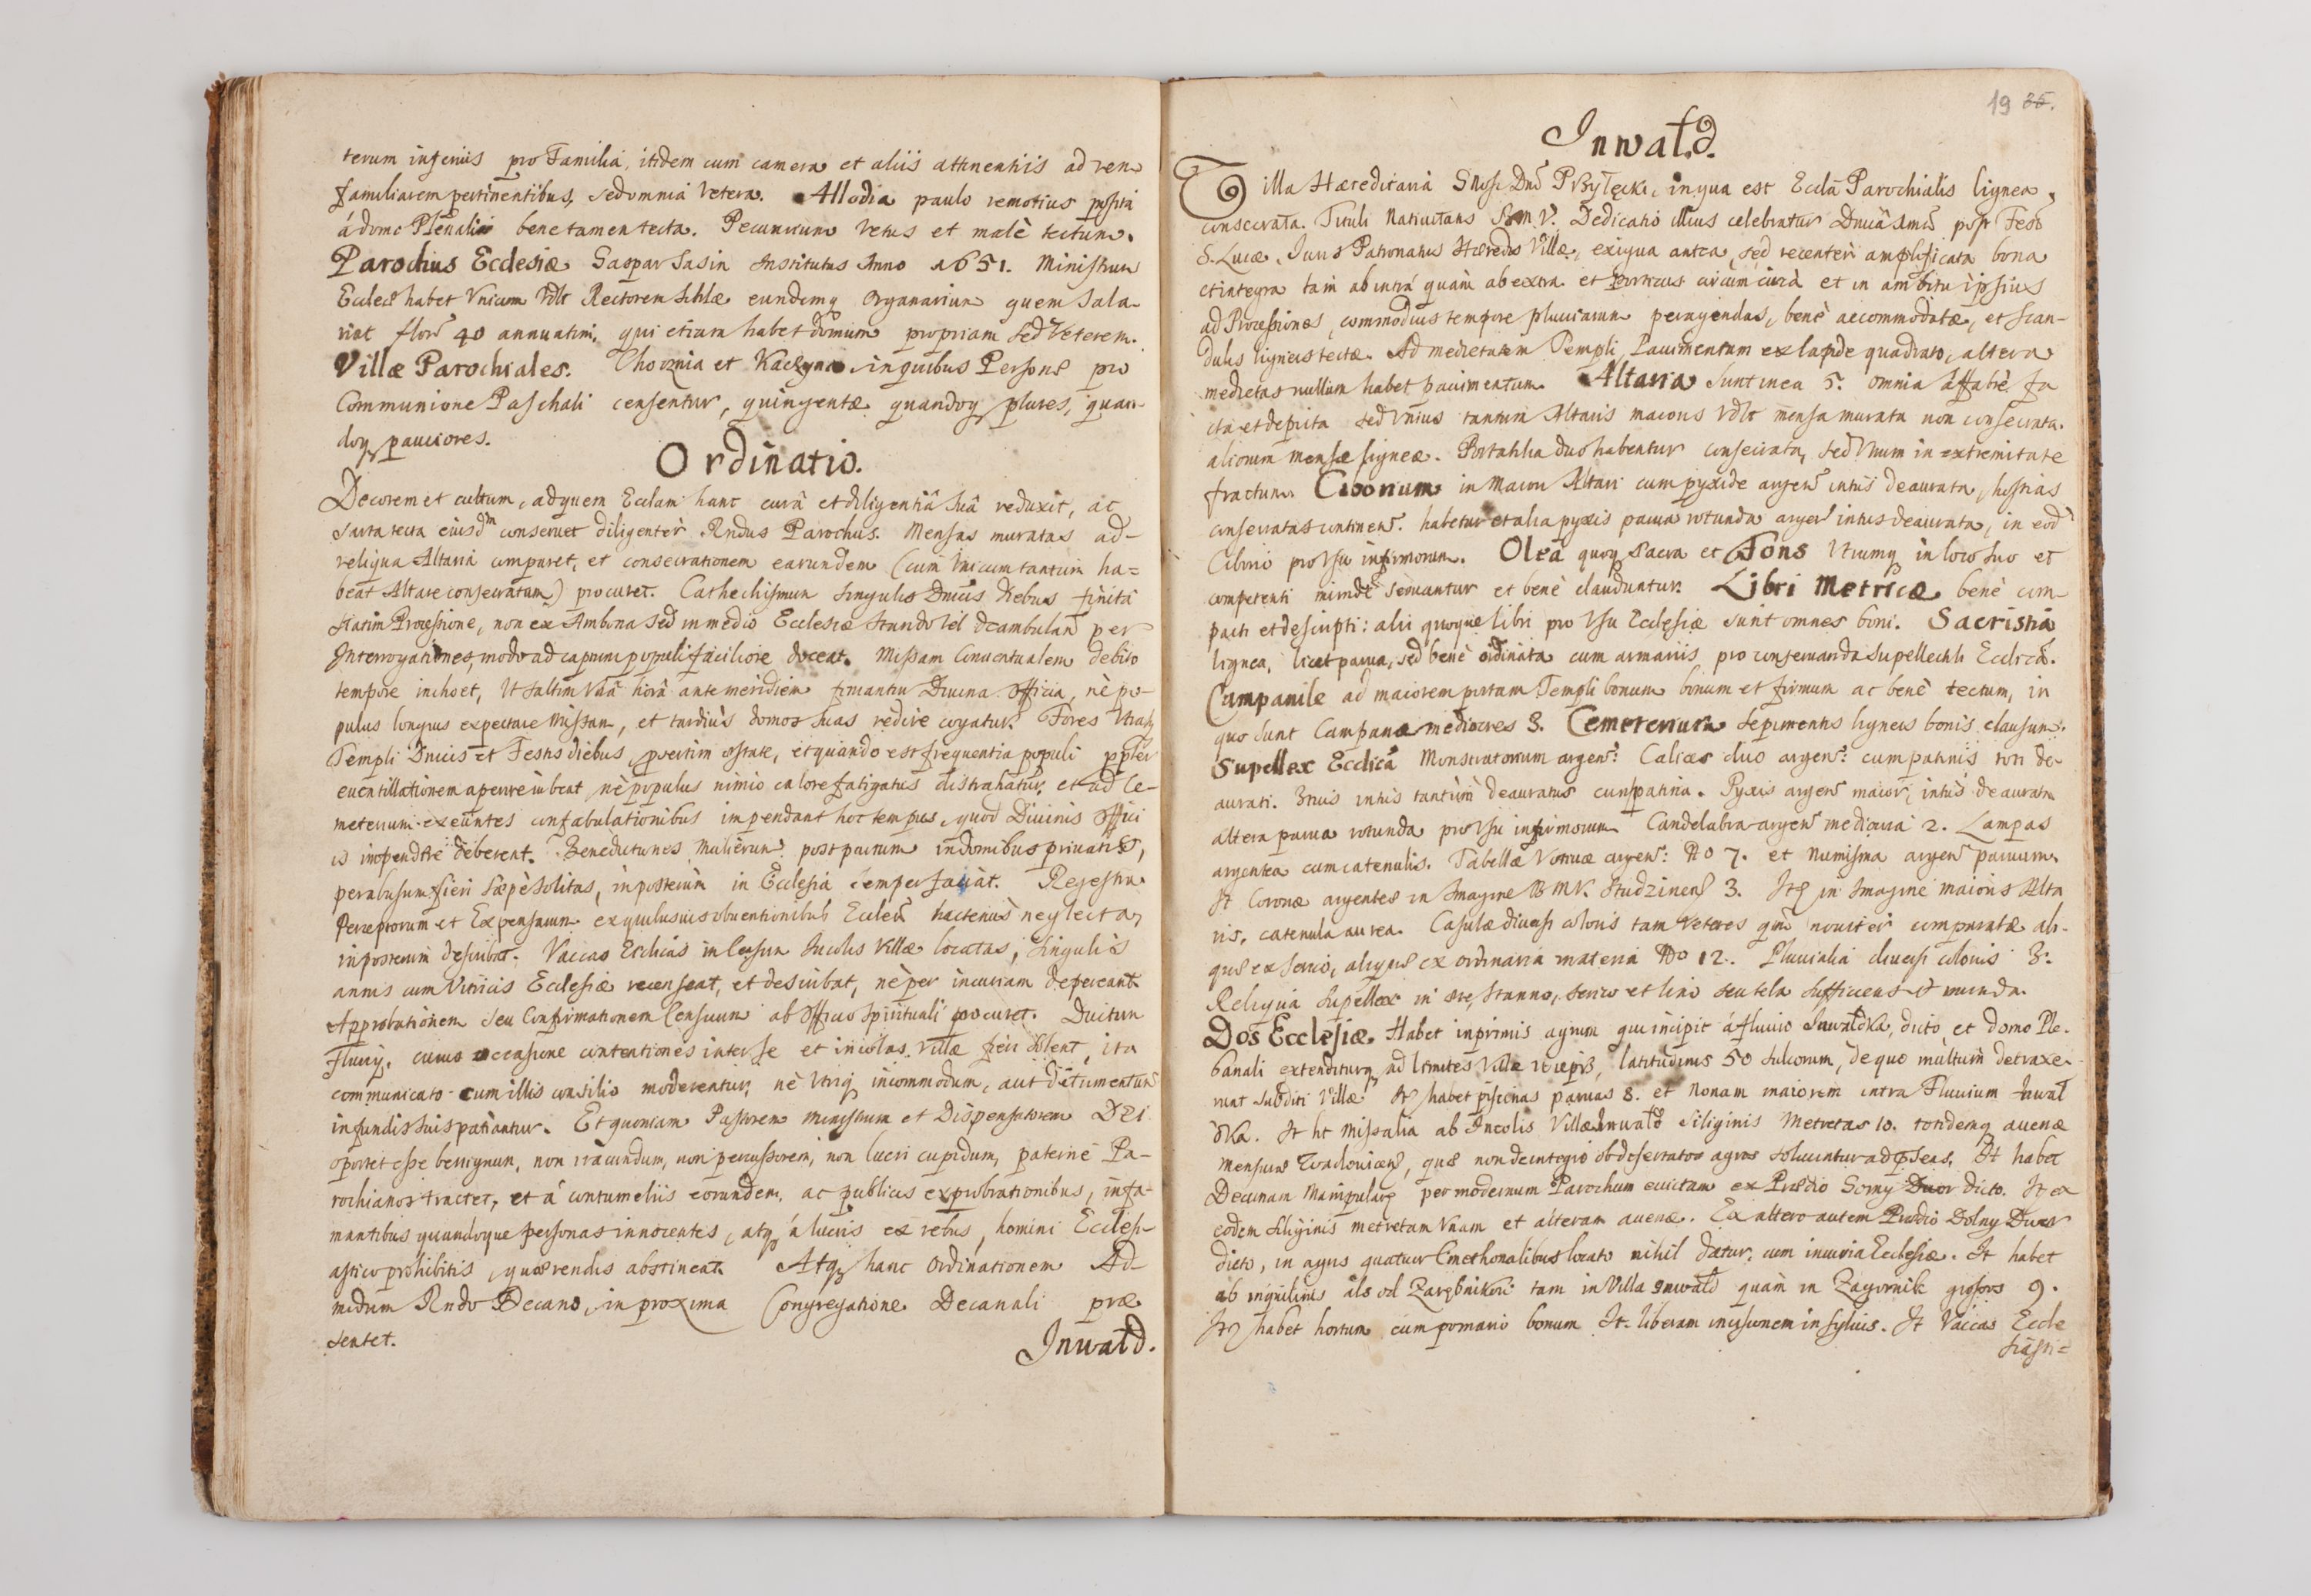 terum inferius pro Familia, itidem cum camera et aliis attinentiis ad rem
familiarem pertinentibus, sed omnia vetera. Allodia paulo remotius posita
á domo Plebanali bene tamen tecta. Pecuarium vetus et malè tectum.
Parochus Ecclesiæ Gaspar Sasin Institutus Anno 1651. Ministrum
Eccles habet Vnicum Vdlt Rectorem Scholæ eundemq Organarium quem Sala-
riat flor 40 annuatim, qui etiam habet domum propriam sed Veterem.
Villæ Parochiales. Choznia et Kaczyna in quibus Personæ pro
Communione Paschali censentur, quingentæ quandoq plures, quan-
doq pauciores.
Ordinatio.
Decorem et cultum, ad quem Ecclam hanc curâ et diligentiâ suâ reduxit, ac
sarta tecta eiusdm conseruet diligenter Rndus Parochus. Mensas muratas ad-
reliqua Altaria comparet, et consecrationem earundem (cum Vnicum tantum ha=
beat Altare consecratum) procuret. Cathechismum singulis Dnicis diebus finitâ
statim Processione, non ex Ambona sed in medio Ecclesiæ stando vel deambulan per
Interrogationes, modo ad captum populi faciliore doceat. Missam Conuentualem debito
tempore inchoet, Vt saltim Vnâ horâ ante meridiem finiantur Diuina officia, nè po-
pulus longius expectare Missam, et tardiùs domos suas redire cogatur. Fores Vtrasq
Templi Dnicis et Festis diebus, præsertim æstate, et quando est frequentia populi ppter
euentillationem aperire iubeat nè populus nimio calore fatigatus distrahatur, et ad Ce-
meterium exeuntes confabulationibus impendant hoc tempus, quod Diuinis offici
is impendere deberent. Benedictiones Mulierum post partum in domibus priuatis,
per abusum fieri sæpè solitas, in posterum in Ecclesia semper faciat. Regestra
Perceptorum et Expensarum ex quibusuis obuentionibus Eccles hactenus neglecta,
in posterum describat. Vaccas Ecclicas in Censum Incolis Villæ locatas, singulis
annis cum Vitricis Ecclesiæ recenseat, et describat, nè per incuriam depereant
Approbationem seu Confirmationem Censuum ab officio Spirituali procuret. Ductum
Fluuij, cuius occasione contentiones inter se et incolas Villæ fieri solent, ita
communicato cum illis consilio moderentur, nè Vtriq incommodum, aut detrimentum
in fundis suis patiantur. Et quoniam Pastorem Ministrum et Dispensatorem DEI
oportet esse benignum, non iracundum, non percussorem, non lucri cupidum, paternè Pa-
rochianos tractet, et á contumeliis eorundem, ac publicis exprobrationibus, infa-
mantibus quandoque personas innocentes, atq á lucris ex rebus, homini Ecclesi-
astico prohibitis, quærendis abstineat. Atq hanc Ordinationem Ad-
modum Rndo Decano, in proxima Congregatione Decanali præ
sentet.
Inwałd.
19 35.
Inwałd.
Villa Hæreditaria Gnosi Dni Przyłęcki, in qua est Eccla Parochialis lignea,
consecrata. Tituli Natiuitatis B.M.V. Dedicatio illius celebratur Dnicâ post Festo
S. Lucæ, Iuris Patronatus Hæredis Villæ, exigua antea, sed recenter amplificata bona
et integra tam ab intrá quàm ab extra et porticus circum circà et in ambitu ipsius
ad Processiones, commodius tempore pluuiarum peragendas, benè accommodatæ, et scan-
dulis ligneis tectæ. Ad medietatem Templi Pauimentum ex lapide quadrato, altera
medietas nullum habet pauimentum. Altaria sunt in ea 5. omnia affabrè fa
cta et depicta sed Vnius tantum Altaris maioris Vdlt mensa murata non consecrata.
aliorum mensæ ligneæ. Portatilia duo habentur consecrata, sed Vnum in extremitate
fractum. Ciborium in Maiori Altari cum pyxide argen intùs deaurata, hostias
consecratas continens. habetur et alia pyxis parua rotunda argen intus deaurata, in eod
Ciborio pro Vsu infirmorum. Olea quoq Sacra et Fons Vtrumq in loco suo et
competenti mundè seruantur et benè clauduntur. Libri Metricæ benè com-
pacti et descripti: alii quoque libri pro Vsu Ecclesiæ sunt omnes boni. Sacristia
lignea, licet parua, sed benè ordinata cum armariis pro conseruanda supellectili Ecclica.
Campanile ad maiorem portam Templi bonum bonum et firmum ac benè tectum, in
quo sunt Campanæ mediocres 3. Cemeterium sepimentis ligneis bonis clausum.
Supellex Ecclica Monstratorium argen: Calices duo argen: cum patinis toti de-
aurati. 3tius intus tantùm deauratus cum patina. Pyxis argen maior, intùs deaurata
altera parua rotunda pro Vsu infirmorum Candelabra argen mediocria 2. Lampas
argentea cum catenulis. Tabellæ Votiuæ argen: No 7. et Numisma argen paruum.
It Coronæ argenteæ in Imagine B.M.V. Studzinen 3. It in Imagine maioris Alta
ris, catenula aurea. Casulæ diuersi coloris tam veteres quàm nouiter comparatæ ali-
quæ ex serico, aliquæ ex ordinaria materia No 12. Pluuialia diuersi coloris 3.
Reliqua supellex in ære, stanno, serico et lino seu tela sufficiens et munda.
Dos Ecclesiæ. Habet inprimis agrum qui incipit á fluuio Inwałdka, dicto, et domo Ple-
banali extenditurq ad limites Villæ, latitudinis 50 sulcorum, de quo multùm detraxe-
runt subditi Villæ It habet piscinas paruas 8. et Nonam maiorem intra Fluuium Inwał
dka. It ht Missalia ab Incolis Villæ Inwałd siliginis Metretas 10. totidemq auenæ
mensuræ Wadouicen, quæ non de integro ob desertatos agros soluuntur ad præsens. It habet
Decimam Manipularem per modernum Parochum euictam ex Prædio Gorny Dwor dicto. It ex
eodem siliginis metretam Vnam et alteram auenæ. Ex altero autem Prædio Dolny Dwor
dicto, in agris quatuor Cmethonalibus locato nihil datur, cum iniuria Ecclesiæ. It habet
ab inquilinis als od Zarębnikow tam in Villa Inwałd quàm in Zagornik grossos 9.
It habet hortum cum pomario bonum It. liberam incisionem in syluis. It Vaccas Eccle
siasti=